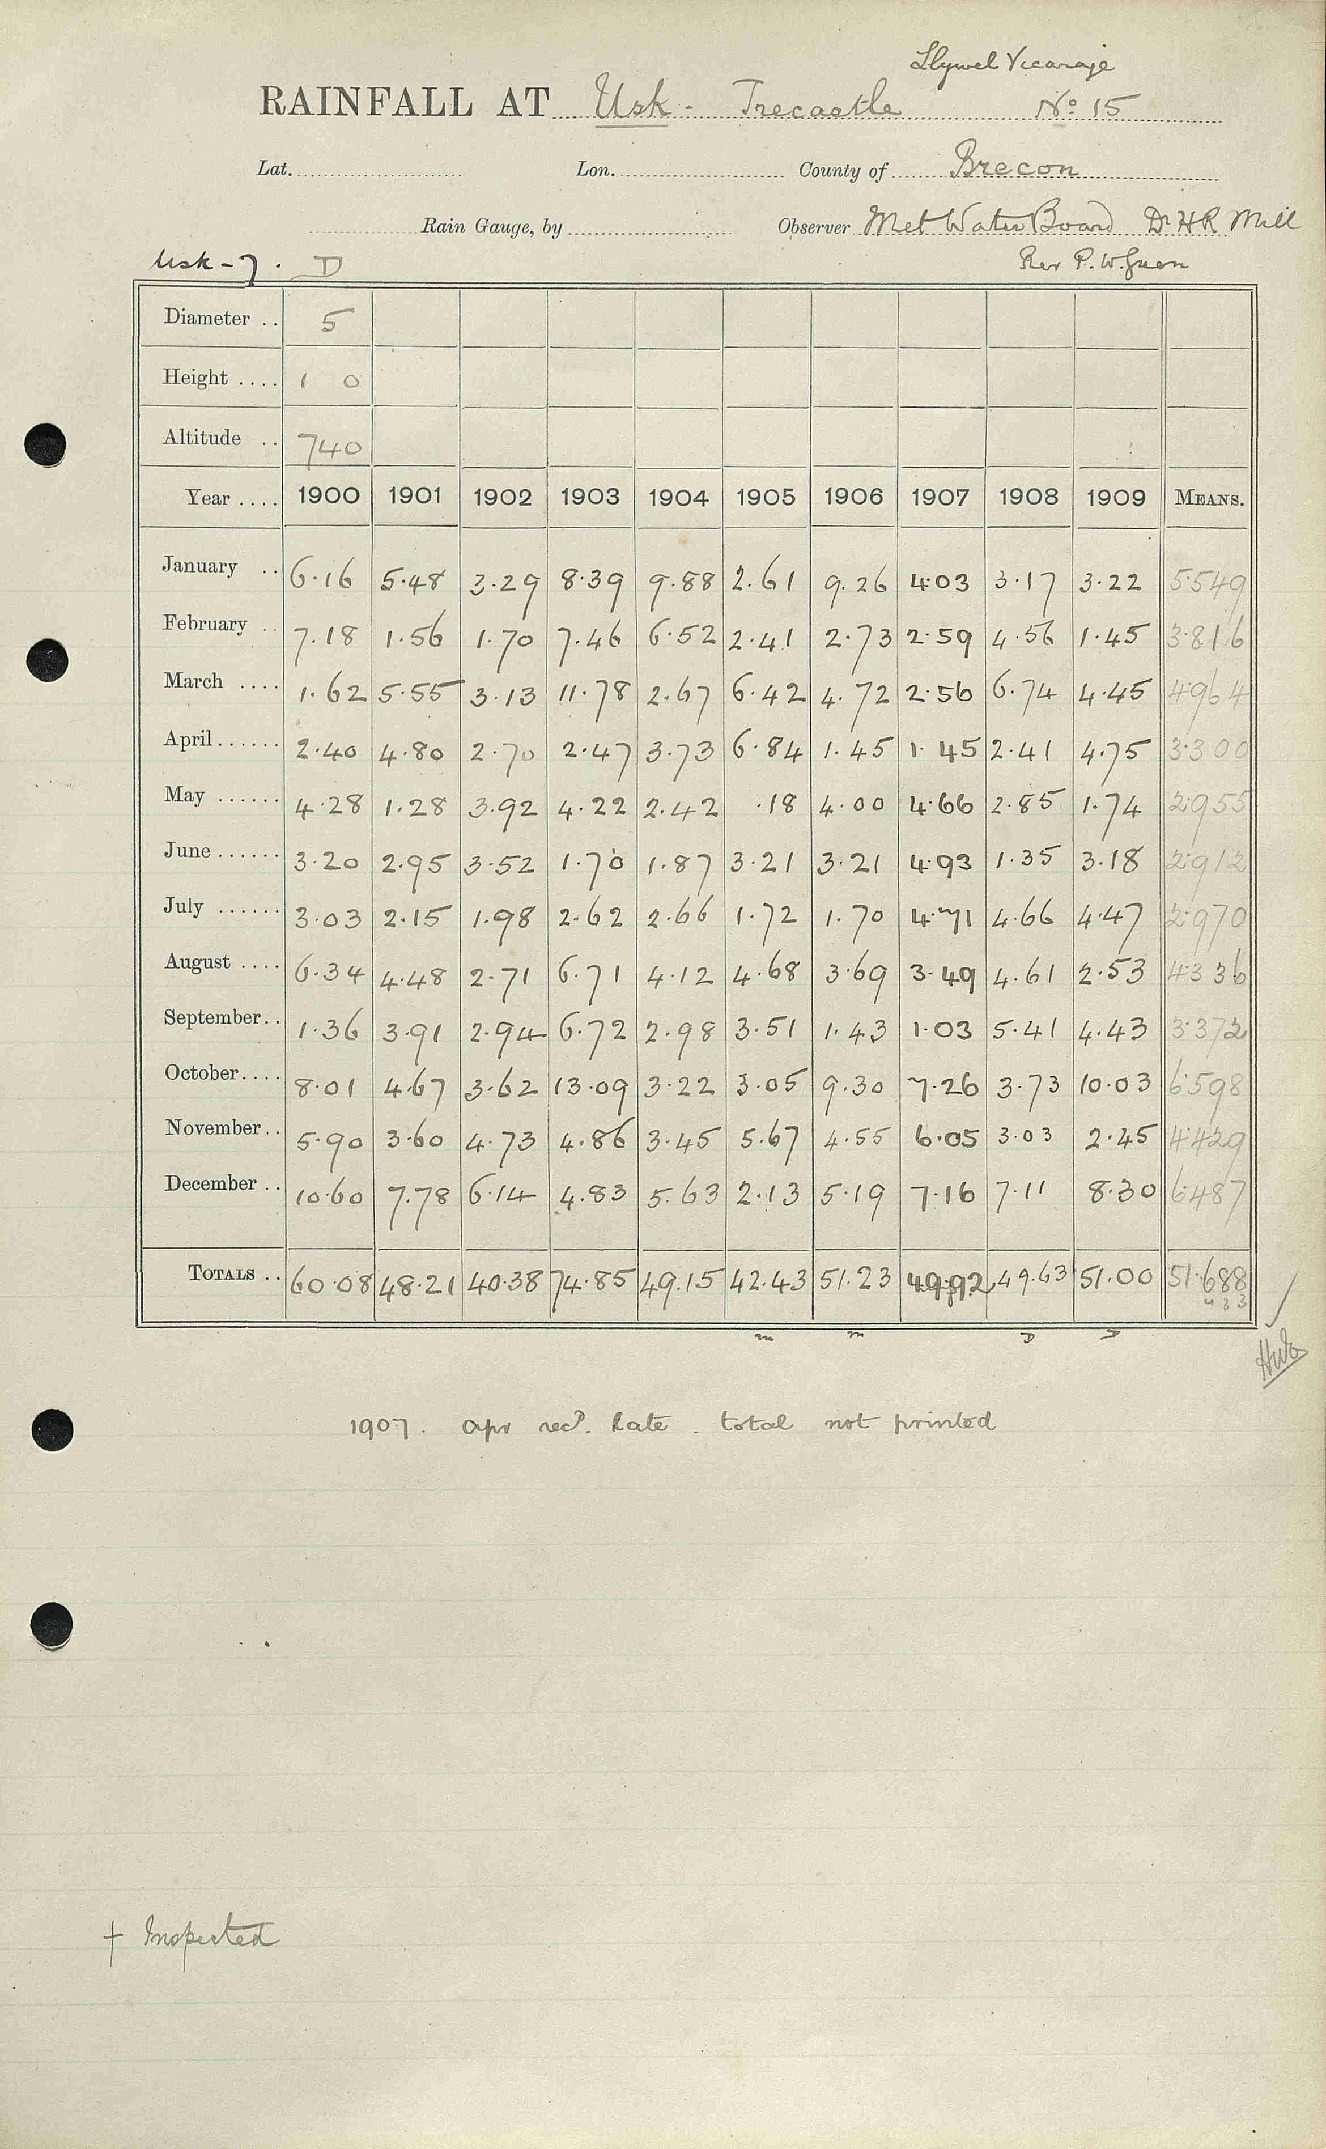 Llywel Vicarage
RAINFALL AT Usk - Trecastle No 15
Lat. Lon. County of Brecon
Rain Gauge, by Observer Met Water Board Dr H R Mill
Usk - 7. D Rev P. W.
Diameter .. 5
Height .... 1 0
Altitude .. 740
Year .... 1900 1901 1902 1903 1904 1905 1906 1907 1908 1909 MEANS.
January .. 6.16 5.48 3.29 8.39 9.88 2.61 9.26 4.03 3.17 3.22 5.549
February .. 7.18 1.56 1.70 7.46 6.52 2.41 2.73 2.59 4.56 1.45 3.816
March .... 1.62 5.55 3.13 11.78 2.67 6.42 4.72 2.56 6.74 4.45 4.964
April...... 2.40 4.80 2.70 2.47 3.73 6.84 1.45 1.45 2.41 4.75 3.300
May ...... 4.28 1.28 3.92 4.22 2.42 .18 4.00 4.66 2.85 1.74 2.955
June...... 3.20 2.95 3.52 1.70 1.87 3.21 3.21 4.93 1.35 3.18 2.912
July ...... 3.03 2.15 1.98 2.62 2.66 1.72 1.70 4.71 4.66 4.47 2.970
August .... 6.34 4.48 2.71 6.71 4.12 4.68 3.69 3.49 4.61 2.53 4.336
September.. 1.36 3.91 2.94 6.72 2.98 3.51 1.43 1.03 5.41 4.43 3.372
October.... 8.01 4.67 3.62 13.09 3.22 3.05 9.30 7.26 3.73 10.03 6.598
November.. 5.90 3.60 4.73 4.86 3.45 5.67 4.55 6.05 3.03 2.45 4.429
December .. 10.60 7.78 6.14 4.83 5.63 2.13 5.19 7.16 7.11 8.30 6.487
TOTALS .. 60.08 48.21 40.38 74.85 49.15 42.43 51.23 49.92 49.63 51.00 51.688
m m D D
1907. Apr recd. late. total not printed
† Inspected